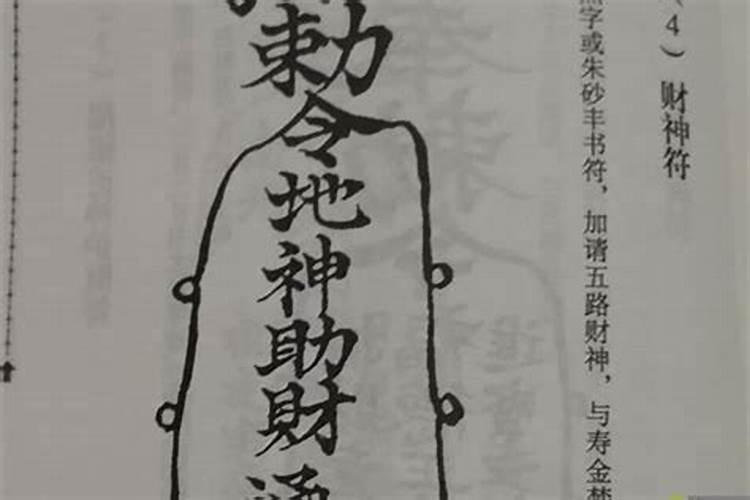 （4）财神符
字或朱砂丰书符，加请五路财神，与寿金
勅令地神助財通